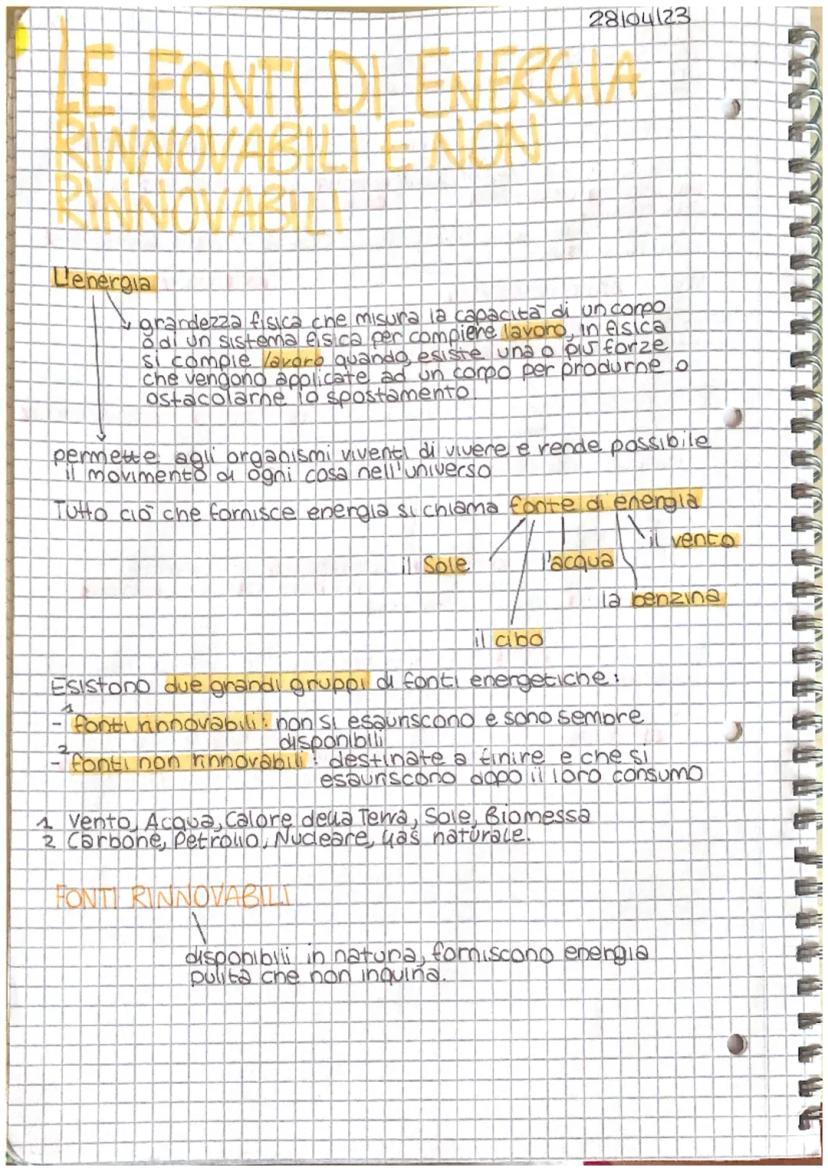 28/04/23
LE FONTI DI ENERGIA
RINNOVABILI E NON
RINNOVABILI
L'energia
grandezza fisica che misura la capacità di un corpo
o di un sistema fisica per compiere lavoro, in fisica
si compie lavoro quando esiste una o più forze
che vengono applicate ad un corpo per produrne o
ostacolarne lo spostamento.
permette agli organismi viventi di vivere e rende possibile
il movimento di ogni cosa nell'universo
Tutto ciò che fornisce energia si chiama fonte di energia
il vento
il Sole l'acqua
la benzina
il cibo
Esistono due grandi gruppi di fonti energetiche:
-1 fonti rinnovabili: non si esauriscono e sono sempre
disponibili
-2 fonti non rinnovabili: destinate a finire e che si
esauriscono dopo il loro consumo
1 Vento, Acqua, Calore della Terra, Sole, Biomessa
2 Carbone, Petrolio, Nucleare, Gas naturale.
FONTI RINNOVABILI
disponibili in natura, forniscono energia
pulita che non inquina.